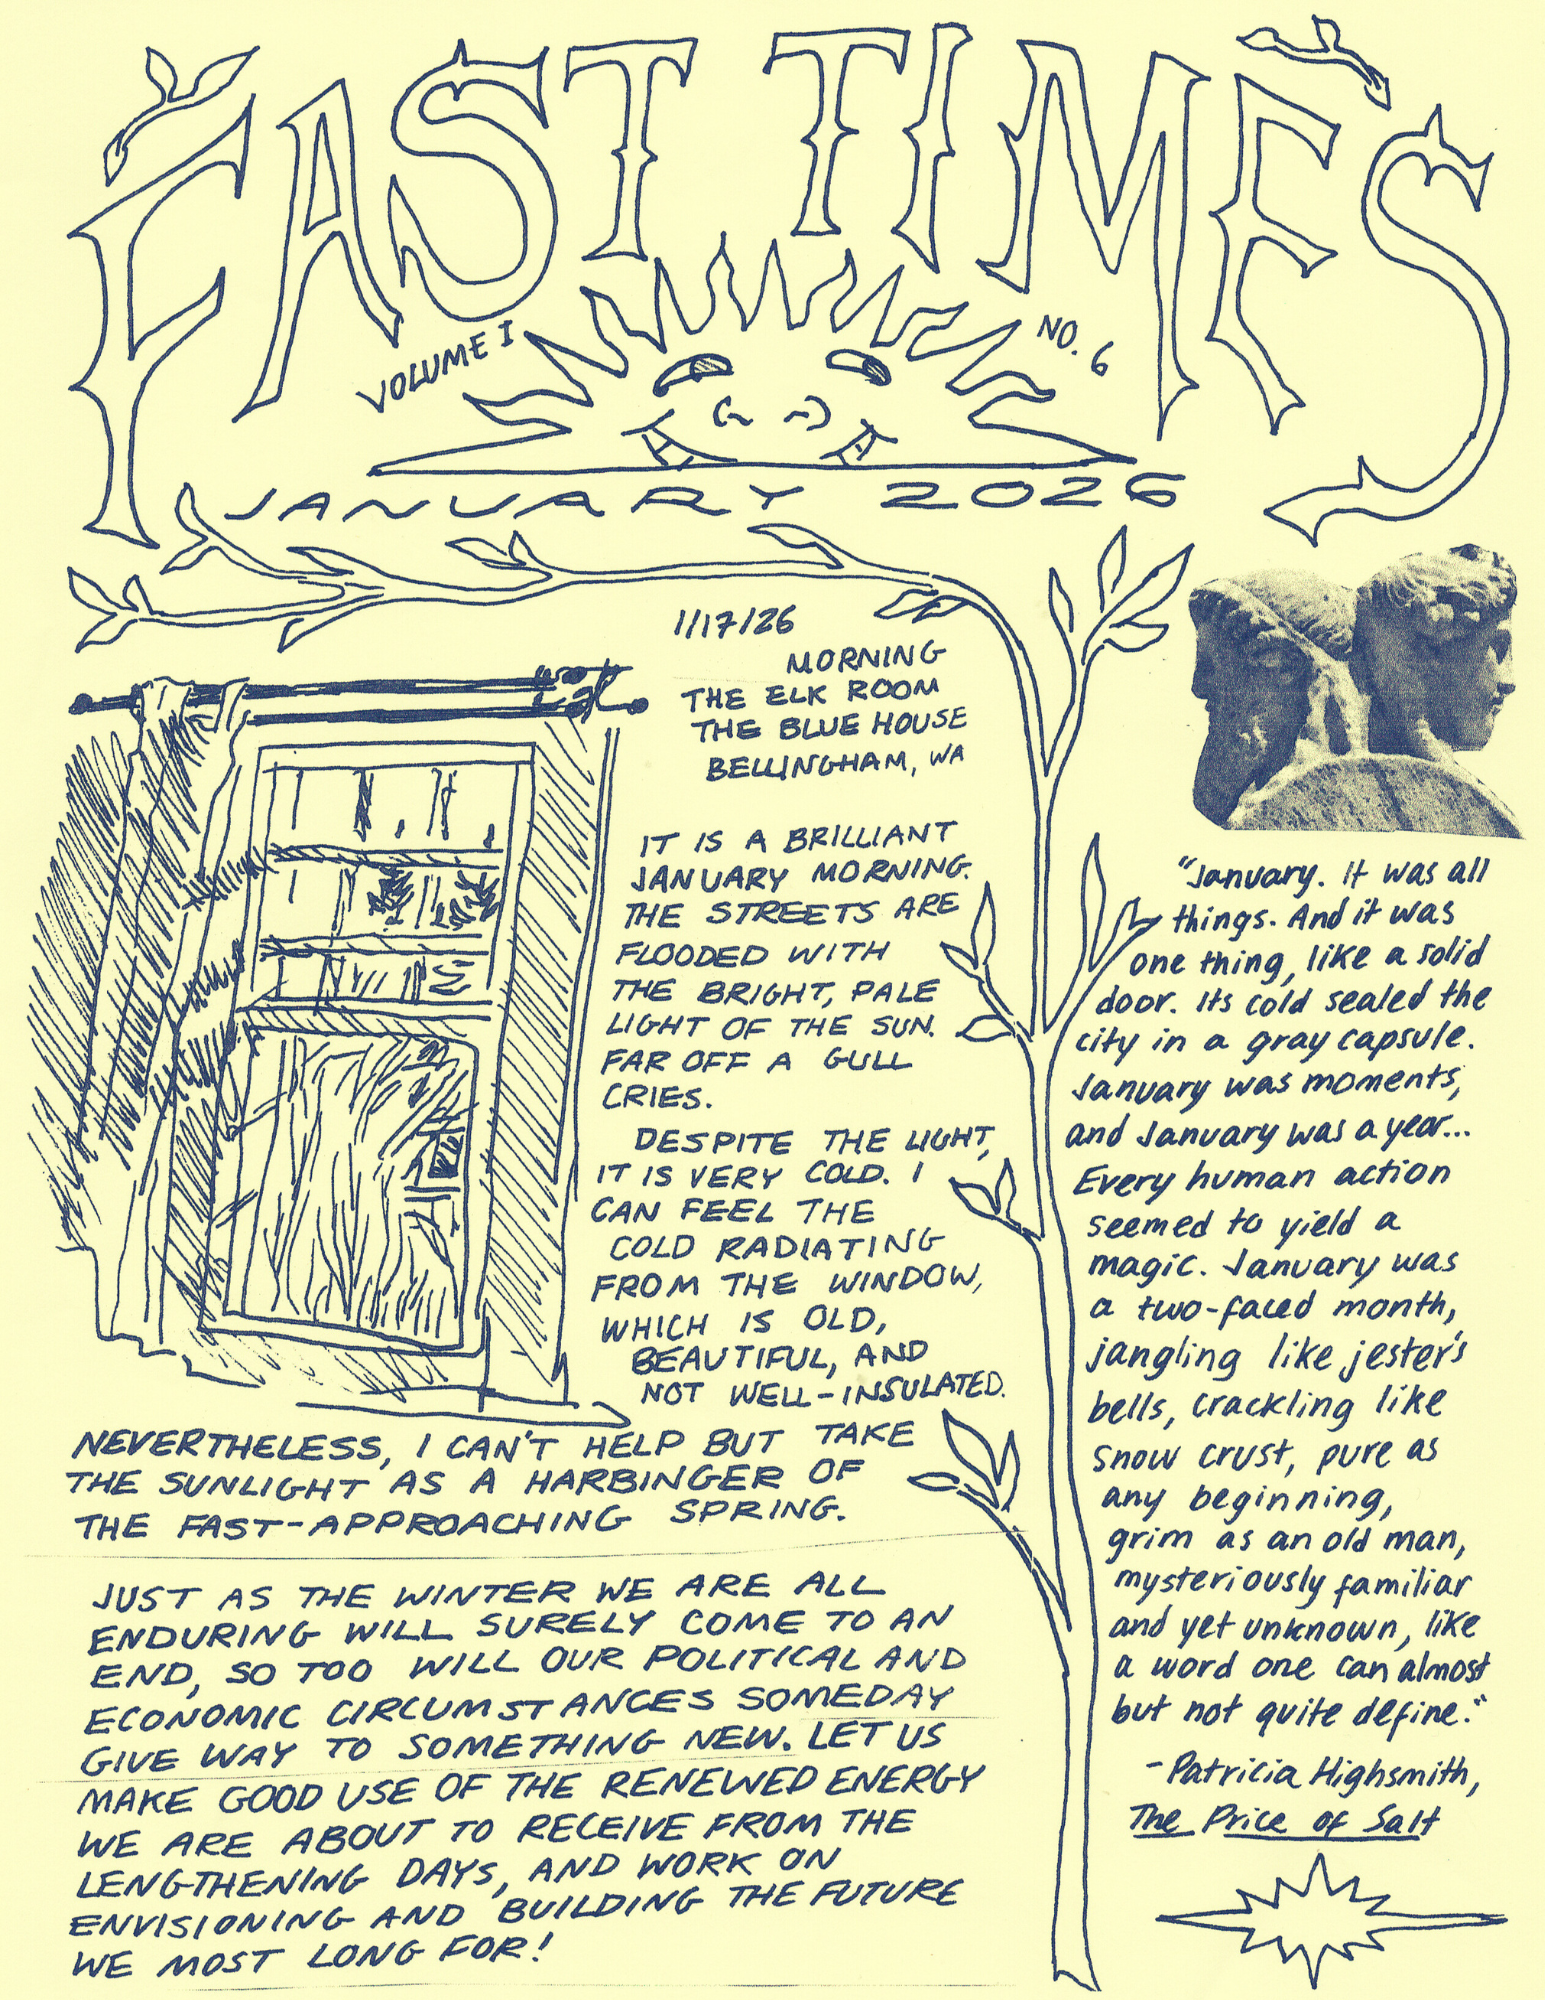 FAST TIMES
VOLUME I
NO. 6
JANUARY 2026
1/17/26
MORNING
THE ELK ROOM
THE BLUE HOUSE
BELLINGHAM, WA
IT IS A BRILLIANT
JANUARY MORNING.
THE STREETS ARE
FLOODED WITH
THE BRIGHT, PALE
LIGHT OF THE SUN.
FAR OFF A GULL
CRIES.
DESPITE THE LIGHT,
IT IS VERY COLD. I
CAN FEEL THE
COLD RADIATING
FROM THE WINDOW,
WHICH IS OLD,
BEAUTIFUL, AND
NOT WELL-INSULATED.
NEVERTHELESS, I CAN'T HELP BUT TAKE
THE SUNLIGHT AS A HARBINGER OF
THE FAST-APPROACHING SPRING.
JUST AS THE WINTER WE ARE ALL
ENDURING WILL SURELY COME TO AN
END, SO TOO WILL OUR POLITICAL AND
ECONOMIC CIRCUMSTANCES SOMEDAY
GIVE WAY TO SOMETHING NEW. LET US
MAKE GOOD USE OF THE RENEWED ENERGY
WE ARE ABOUT TO RECEIVE FROM THE
LENGTHENING DAYS, AND WORK ON
ENVISIONING AND BUILDING THE FUTURE
WE MOST LONG FOR!
"January. It was all
things. And it was
one thing, like a solid
door. Its cold sealed the
city in a gray capsule.
January was moments,
and January was a year...
Every human action
seemed to yield a
magic. January was
a two-faced month,
jangling like jester's
bells, crackling like
snow crust, pure as
any beginning,
grim as an old man,
mysteriously familiar
and yet unknown, like
a word one can almost
but not quite define."
-Patricia Highsmith,
The Price of Salt